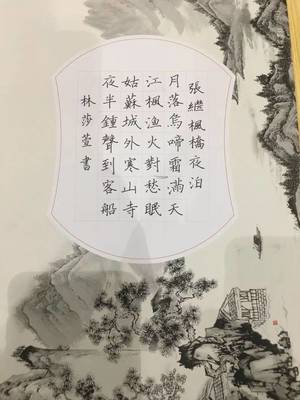 張繼楓橋夜泊
月落烏啼霜滿天
江楓漁火對愁眠
姑蘇城外寒山寺
夜半鐘聲到客船
林莎萱書